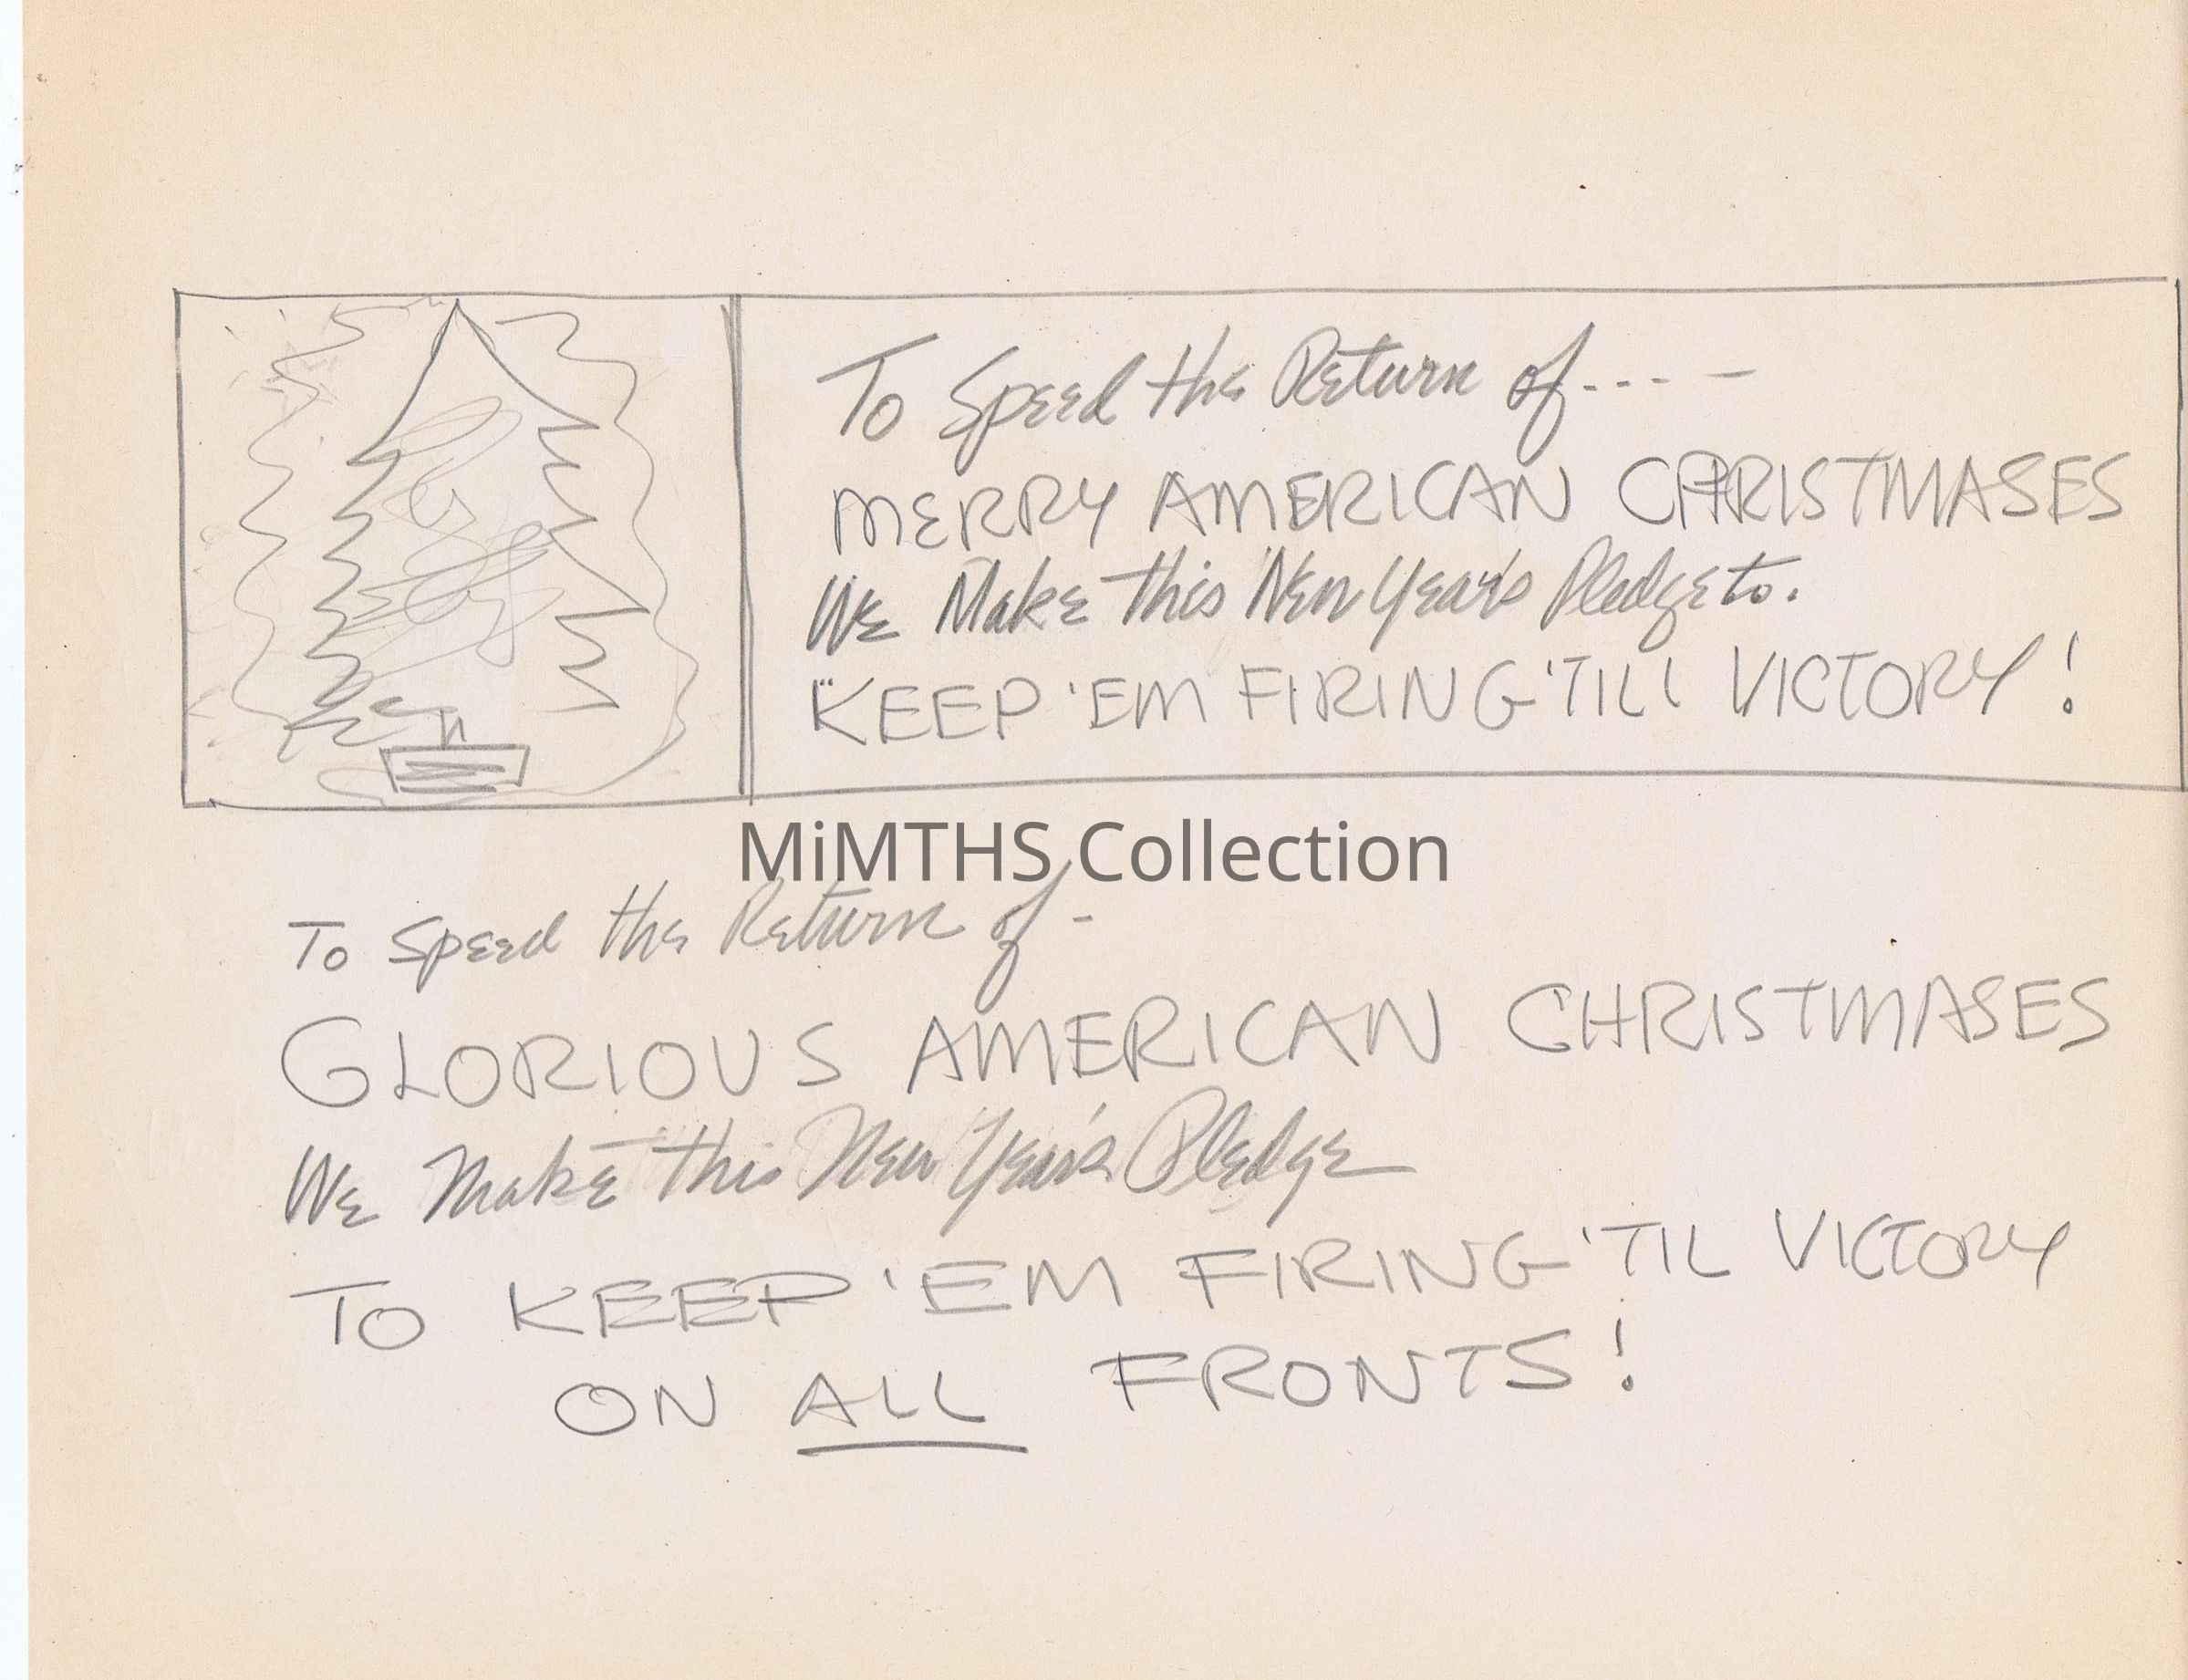 To Speed the Return of.... -
MERRY AMERICAN CHRISTMASES
We Make this New Year's Pledge to.
"KEEP 'EM FIRING 'TILL VICTORY!
MiMTHS Collection
To Speed the Return of -
GLORIOUS AMERICAN CHRISTMASES
We Make this New Year's Pledge
TO KEEP 'EM FIRING 'TIL VICTORY
ON ALL FRONTS!